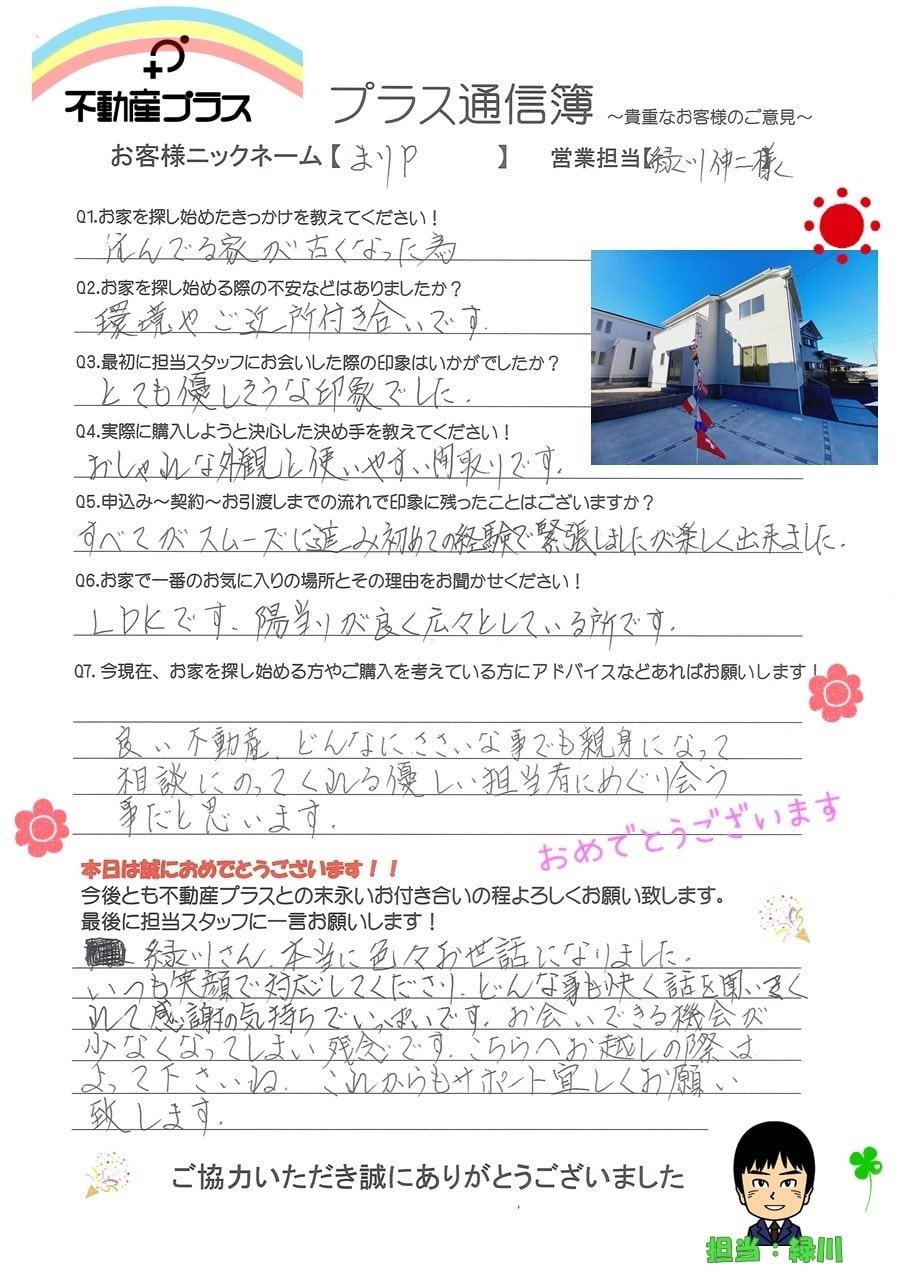 不動産プラス
プラス通信簿 ～貴重なお客様のご意見～
お客様ニックネーム【 まりP 】 営業担当【緑川伸二様
Q1.お家を探し始めたきっかけを教えてください！
住んでる家が古くなった為
Q2.お家を探し始める際の不安などはありましたか？
環境やご近所付き合いです.
Q3.最初に担当スタッフにお会いした際の印象はいかがでしたか？
とても優しそうな印象でした.
Q4.実際に購入しようと決心した決め手を教えてください！
おしゃれな外観と使いやすい間取りです.
Q5.申込み～契約～お引渡しまでの流れで印象に残ったことはございますか？
すべてがスムーズに進み初めての経験で緊張しましたが楽しく出来ました.
Q6.お家で一番のお気に入りの場所とその理由をお聞かせください！
LDKです.陽当りが良く広々としている所です.
Q7. 今現在、お家を探し始める方やご購入を考えている方にアドバイスなどあればお願いします！
良い不動産、どんなにささいな事でも親身になって
相談にのってくれる優しい担当者にめぐり会う
事だと思います.
おめでとうございます
本日は誠におめでとうございます！！
今後とも不動産プラスとの末永いお付き合いの程よろしくお願い致します。
最後に担当スタッフに一言お願いします！
緑川さん、本当に色々お世話になりました.
いつも笑顔で対応してくださり、どんな事も快く話を聞いてく
れて感謝の気持ちでいっぱいです.お会いできる機会が
少なくなってしまい残念です.こちらへお越しの際は
よって下さいね. これからもサポート宜しくお願い
致します.
ご協力いただき誠にありがとうございました
担当：緑川